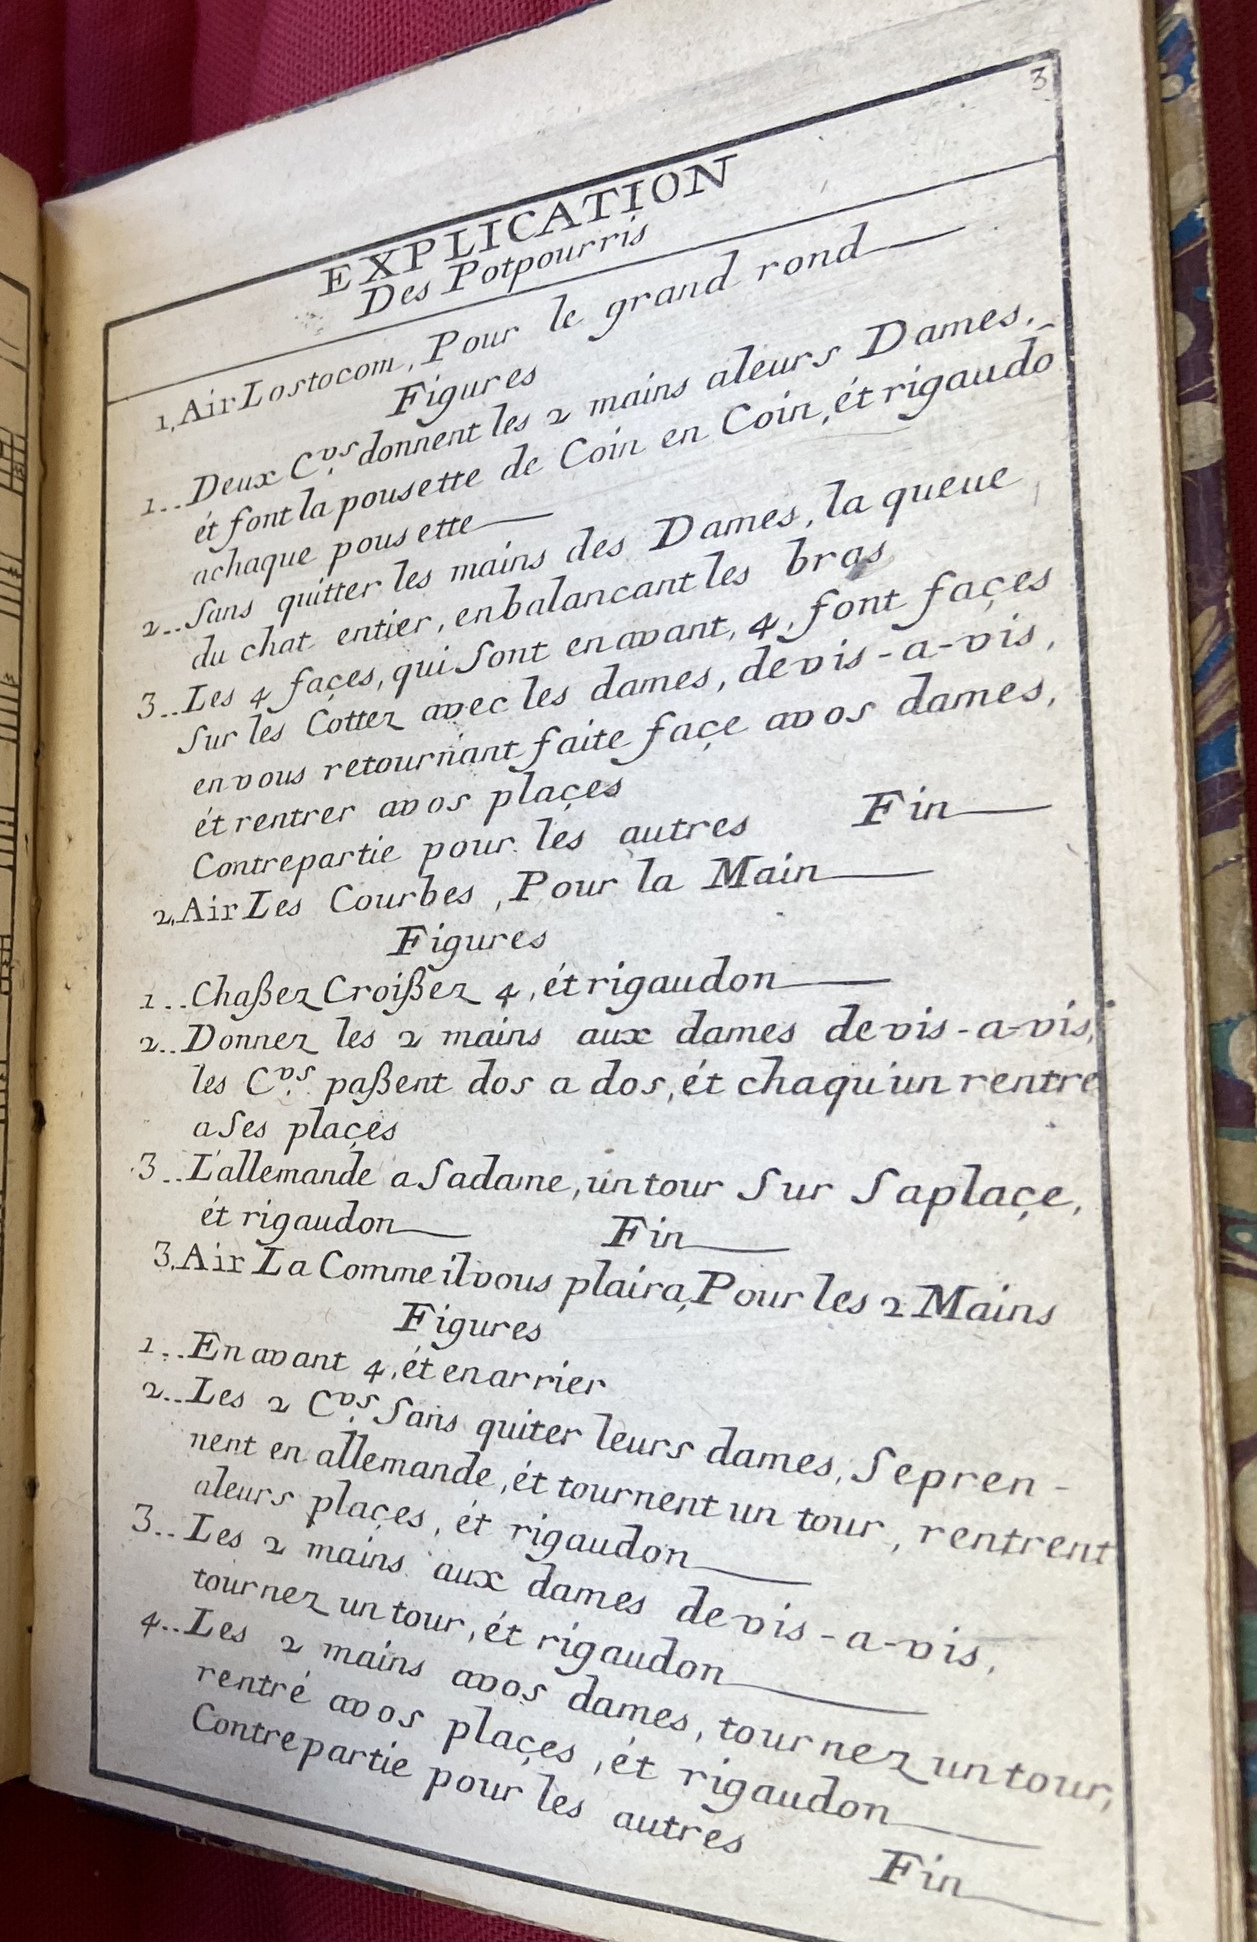 3
EXPLICATION
Des Potpourris
1, Air Lostocom, Pour le grand rond
Figures
1.. Deux C.vrs donnent les 2 mains aleurs Dames,
ét font la pousette de Coin en Coin, ét rigaudō
achaque pousette
2.. Sans quitter les mains des Dames, la queue
du chat entier, en balancant les bras
3.. Les 4 façes, qui sont en avant, 4, font façes
Sur les Cottez avec les dames, de vis-a-vis,
en vous retournant faite façe avos dames,
ét rentrer avos plaçes
Contrepartie pour les autres Fin
2, Air Les Courbes, Pour la Main
Figures
1.. Chaßez Croißez 4, ét rigaudon
2.. Donnez les 2 mains aux dames de vis-a-vis,
les C.vrs paßent dos a dos, ét chaqu'un rentre
a Ses plaçes
3.. L'allemande a Sadame, un tour Sur Saplaçe,
ét rigaudon Fin
3, Air La Comme il vous plaira, Pour les 2 Mains
Figures
1.. En avant 4, ét enarrier
2.. Les 2 C.vrs Sans quiter leurs dames, Sepren-
nent en allemande, ét tournent un tour, rentrent
aleurs plaçes, ét rigaudon
3.. Les 2 mains aux dames de vis-a-vis,
tournez un tour, ét rigaudon
4.. Les 2 mains avos dames, tournez un tour,
rentré avos plaçes, ét rigaudon
Contrepartie pour les autres
Fin